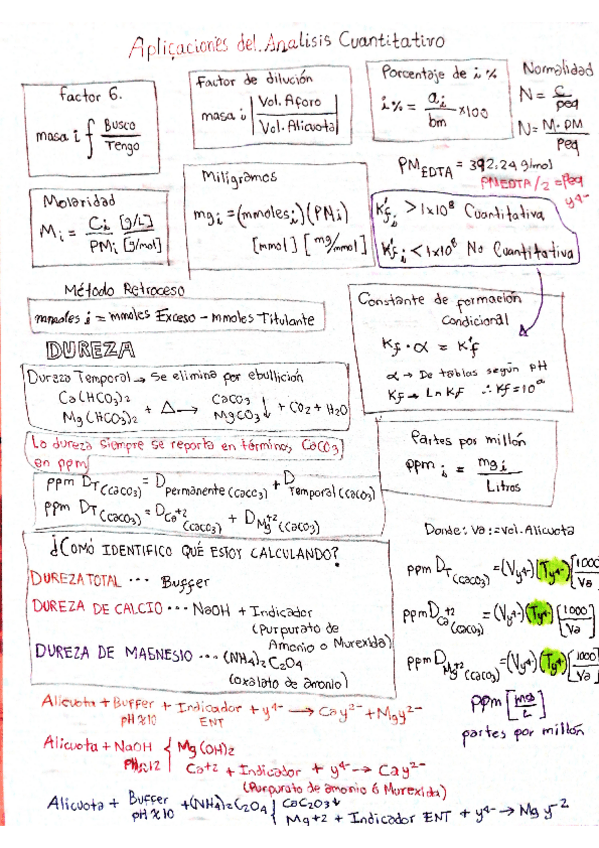 Aplicaciones del Analisis Cuantitativo
factor G.
masa i ∫ Busco / Tengo
Factor de dilución
masa i | Vol. Aforo / Vol. Alicuota |
Porcentaje de i %
i% = ai / bm × 100
Normalidad
N = C / peq
N = M · PM / Peq
PM EDTA = 392.24 g/mol
PM EDTA / 2 = Peq
y⁴⁻
Molaridad
Mi = Ci [g/L] / PMi [g/mol]
Miligramos
mgi = (mmolesi)(PMi)
[mmol] [mg/mmol]
K'f i > 1x10⁸ Cuantitativa
K'f i < 1x10⁸ No Cuantitativa
Método Retroceso
mmoles i = mmoles Exceso − mmoles Titulante
Constante de formación
Condicional
Kf · α = K'f
α → De tablas según pH
Kf → Ln Kf ∴ Kf = 10ᵅ
DUREZA
Dureza Temporal → Se elimina por ebullición
Ca(HCO3)2
Mg(HCO3)2 + Δ → CaCO3 MgCO3 ↓ + CO2 + H2O
La dureza siempre se reporta en términos CaCO3
en ppm
Partes por millón
ppm i = mgi / Litros
ppm DT(CaCO3) = Dpermanente(CaCO3) + DTemporal(CaCO3)
ppm DT(CaCO3) = DCa+2(CaCO3) + DMg+2(CaCO3)
Donde: Va := Vol. Alicuota
¿COMÓ IDENTIFICO QUÉ ESTOY CALCULANDO?
DUREZA TOTAL ··· Buffer
DUREZA DE CALCIO ··· NaOH + Indicador
(Purpurato de
Amonio o Murexida)
DUREZA DE MAGNESIO ··· (NH4)2C2O4
(oxalato de amonio)
ppm DT(CaCO3) = (Vy⁴⁻)(Ty⁴⁻)[1000 / Va
ppm DCa+2(CaCO3) = (Vy⁴⁻)(Ty⁴⁻)[1000 / Va]
ppm DMg+2(CaCO3) = (Vy⁴⁻)(Ty⁴⁻)[1000 / Va]
ppm [mg / L]
partes por millón
Alicuota + Buffer + Indicador + y⁴⁻ → Cay²⁻ + Mgy²⁻
pH≈10 ENT
Alicuota + NaOH { Mg(OH)2
pH≈12 Ca+2 + Indicador + y⁴⁻ → Cay²⁻
(Purpurato de amonio ó Murexida)
Alicuota + Buffer + (NH4)2C2O4 { CaC2O3↓
pH≈10 Mg+2 + Indicador ENT + y⁴⁻ → Mgy⁻²